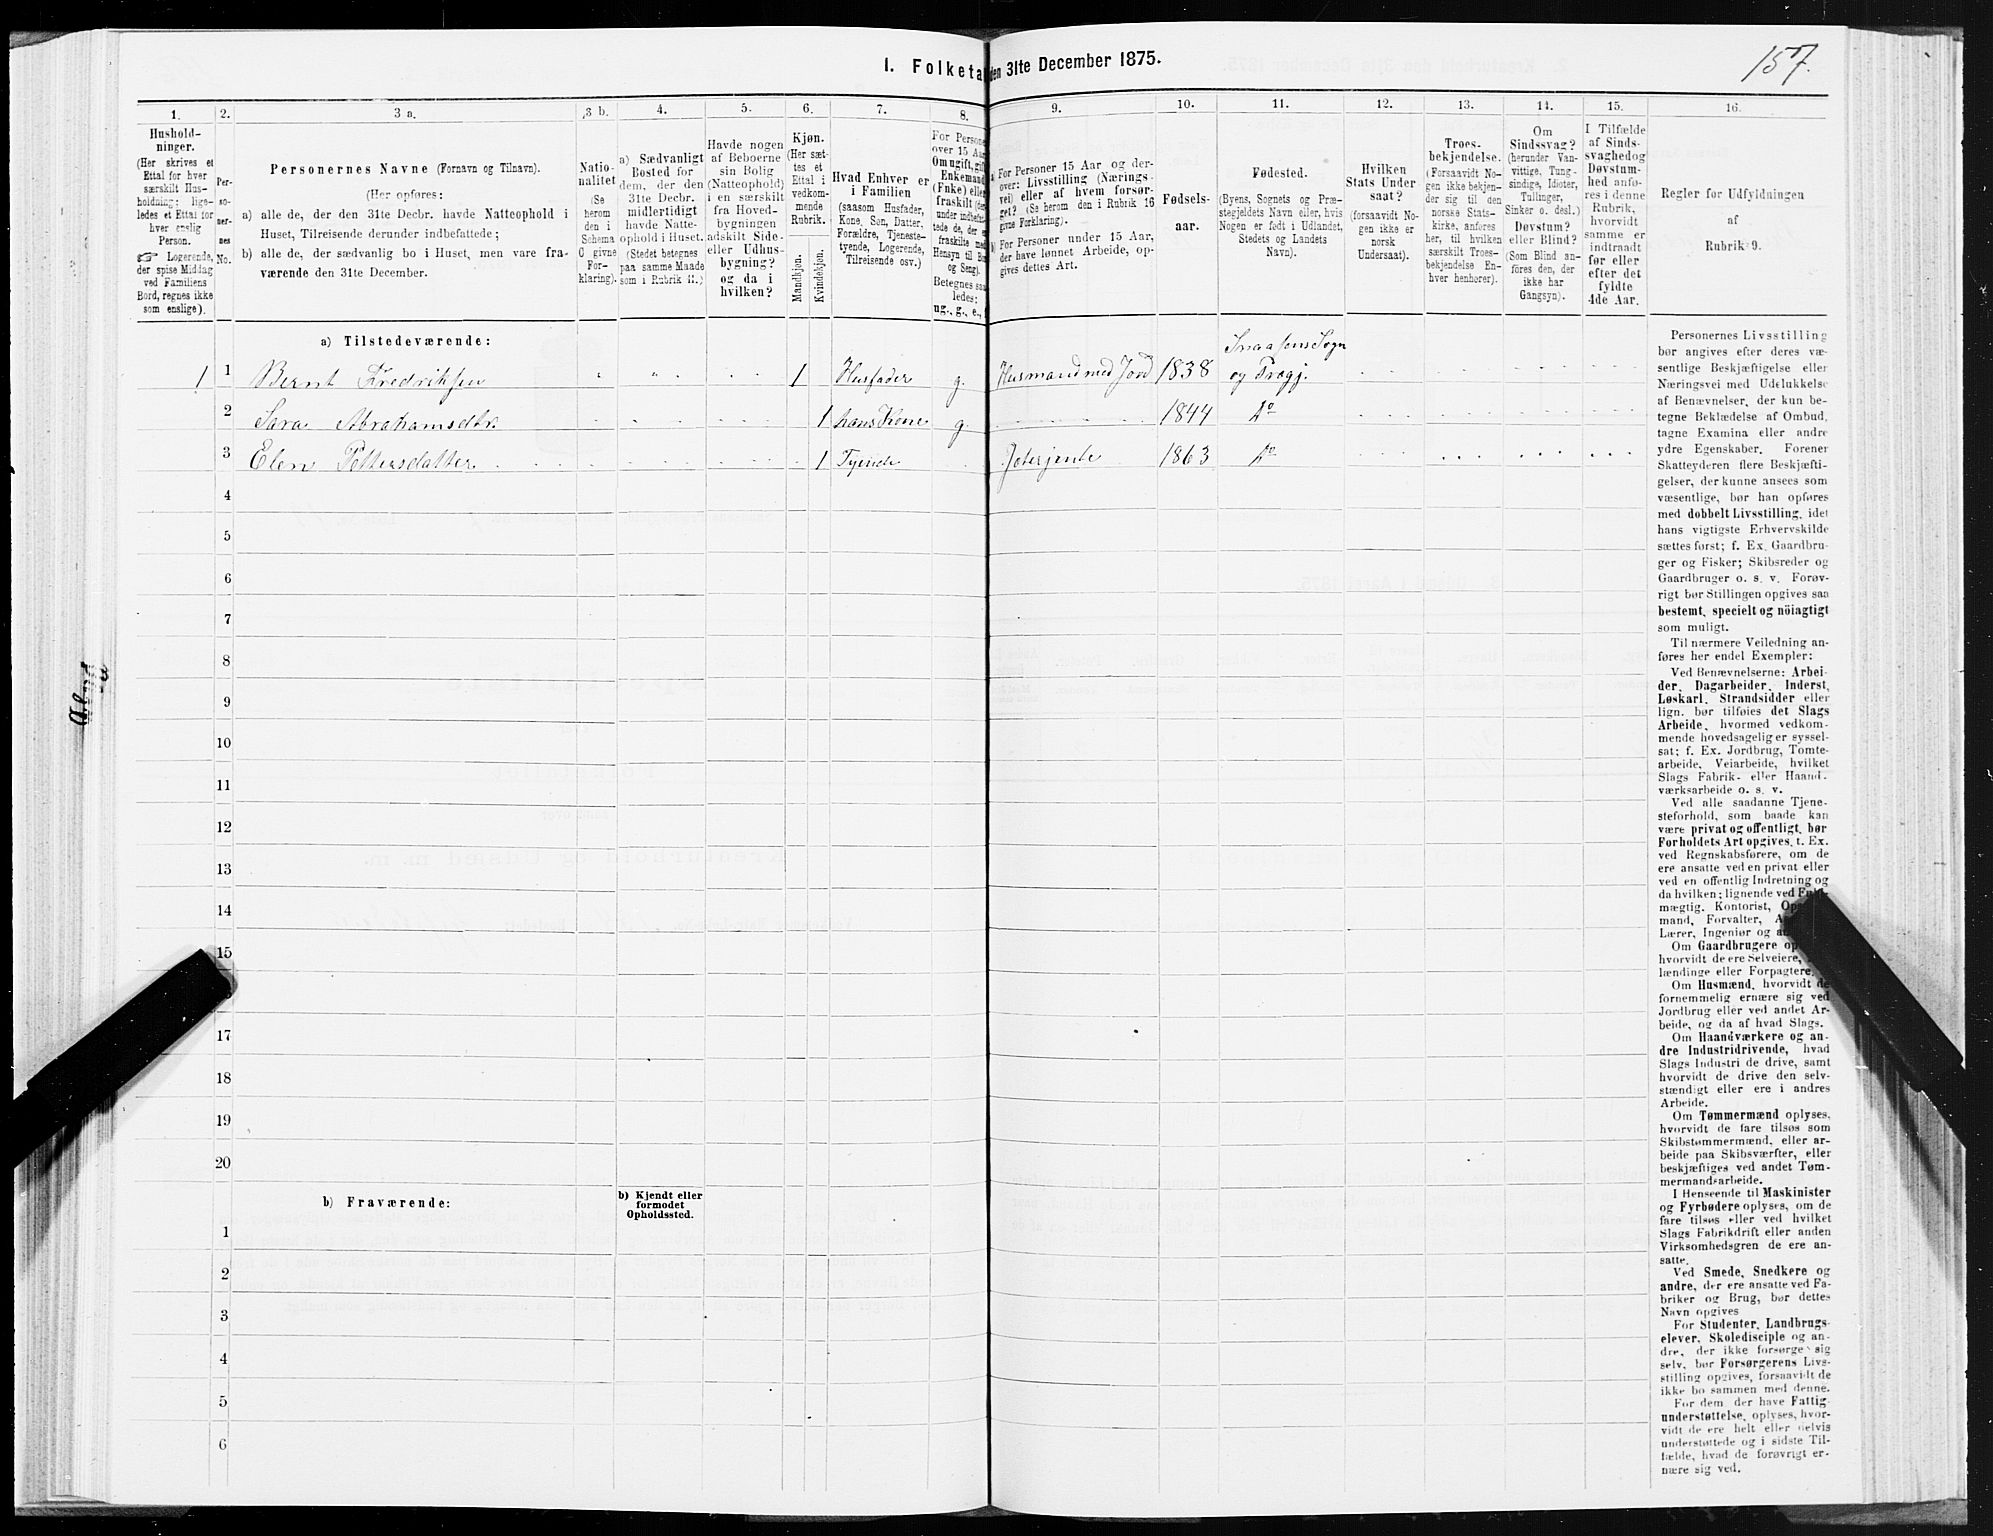 157.
I. Folketa
den 31te December 1875.
1.
2.
3 a.
3 b.
4.
5.
6.
7.
8.
9.
10.
11.
12.
13.
14.
15.
16.
Hushold-
ninger.
(Her skrives et
Ettal for hver
særskilt Hus-
holdning; lige-
ledes et Ettal for
hver enslig
Person.
☞ Logerende,
der spise Middag
ved Familiens
Bord, regnes ikke
som enslige).
Per-
so-
ner-
nes
No.
Personernes Navne (Fornavn og Tilnavn).
(Her opføres:
a) alle de, der den 31te Decbr. havde Natteophold i
Huset, Tilreisende derunder indbefattede;
b) alle de, der sædvanlig bo i Huset, men vare fra-
værende den 31te December.
Natio-
nalitet
(Se
herom
den i
Schema
C givne
For-
klaring).
a) Sædvanligt
Bosted for
dem, der den
31te Decbr.
midlertidigt
havde Natte-
ophold i Huset.
(Stedet betegnes
paa samme Maade
som i Rubrik 11.)
Havde nogen
af Beboerne
sin Bolig
(Natteophold)
i en særskilt
fra Hoved-
bygningen
adskilt Side-
eller Udhus-
bygning?
og da i
hvilken?
Kjøn.
(Her sæt-
tes et
Ettal i
vedkom-
mende
Rubrik.
Mandkjøn.
Kvindekjøn.
Hvad Enhver er
i Familien
(saasom Husfader,
Kone, Søn, Datter,
Forældre, Tjeneste-
tyende, Logerende,
Tilreisende osv.)
For Persone
over 15 Aar
Om ugift, gift
Enkemand
(Enke) elle
fraskilt (de
under indbefat-
tede de, der e
fraskilte me
Hensyn til Bo
og Seng).
Betegnes saa
ledes:
ug., g., e., f
a) For Personer 15 Aar og der-
over: Livsstilling (Nærings-
vei) eller af hvem forsør-
get? (Se herom den i Rubrik 16
givne Forklaring).
b) For Personer under 15 Aar,
der have lønnet Arbeide, op-
gives dettes Art.
Fødsels-
aar.
Fødested.
(Byens, Sognets og Præ-
stegjeldets Navn eller, hvis
Nogen er født i Udlandet,
Stedets og Landets
Navn).
Hvilken
Stats Under
saat?
(forsaavidt No-
gen ikke er
norsk
Undersaat).
Troes-
bekjendelse.
(Forsaavidt No-
gen ikke bekjen-
der sig til den
norske Stats-
kirke, anføres
her, til hvilken
særskilt Troes-
bekjendelse En-
hver henhører).
Om
Sindssvag?
(herunder Van-
vittige, Tung-
sindige, Idioter,
Tullinger,
Sinker o. desl.)
Døvstum?
eller Blind?
(Som Blind an-
føres den, der
ikke har
Gangsyn).
I Tilfælde
af Sinds-
svaghedog
Døvstum-
hed anfø-
res i denne
Rubrik,
hvorvidt
samme er
indtraadt
før eller
efter det
fyldte
4de Aar.
Regler for Udfyldningen
af
Rubrik 9.
a) Tilstedeværende:
Snaasens Sogn
1 1 Bernt Fredriksen 1 Husfader g. Husmand med Jord 1838 og Præg j.
2 Sara Abrahamsdtr. 1 hans Kone g. 1844 do
3 Elen Pettersdatter 1 Tyende Jeterjente 1863 do
4
5
6
7
8
9
10
11
12
13
14
15
17
18
19
20
b) Fraværende:
b) Kjendt eller
formodet
Opholdssted.
1
2
3
4
5
6
Personernes Livsstilling
bør angives efter deres væ-
sentlige Beskjæftigelse eller
Næringsvei med Udelukkelse
af Benævnelser, der kun be-
tegne Beklædelse af Ombud,
tagne Examina eller andre
ydre Egenskaber. Forener
Skatteyderen flere Beskjæfti-
gelser, der kunne ansees som
væsentlige, bør han opføres
med dobbelt Livsstilling, idet
hans vigtigste Erhvervskilde
sættes først; f. Ex. Gaardbru-
ger og Fisker; Skibsreder og
Gaardbruger o. s. v. Forøv-
rigt bør Stillingen opgives saa
bestemt, specielt og nöiagtigt
som muligt.
Til nærmere Veiledning an-
føres her endel Exempler:
Ved Benævnelserne: Arbei-
der, Dagarbeider, Inderst,
Løskarl, Strandsidder eller
lign. bør tilføies det Slags
Arbeide, hvormed vedkom-
mende hovedsagelig er syssel-
sat; f. Ex. Jordbrug, Tomte-
arbeide, Veiarbeide, hvilket
Slags Fabrik- eller Haand-
værksarbeide o. s. v.
Ved alle saadanne Tjene-
steforhold, som baade kan
være privat og offentligt, bør
Forholdets Art opgives, t. Ex.
ved Regnskabsførere, om de
ere ansatte ved en privat eller
ved en offentlig Indretning og
da hvilken; lignende ved
mægtig, Kontorist,
mand, Forvalter,
Lærer, Ingeniør og
Om Gaardbrugere
hvorvidt de ere Selveiere,
lændinge eller Forpagtere.
Om Husmænd, hvorvidt de
fornemmelig ernære sig ved
Jordbrug eller ved andet Ar-
beide, og da af hvad Slags.
Om Haandværkere og an-
dre Industridrivende, hvad
Slags Industri de drive, samt
hvorvidt de drive den selv-
stændigt eller ere i andres
Arbeide.
Om Tømmermænd oplyses,
hvorvidt de fare tilsøs som
Skibstømmermænd, eller ar-
beide paa Skibsværfter, eller
beskjæftiges ved andet Tøm-
mermandsarbeide.
I Henseende til Maskinister
og Fyrbødere oplyses, om de
fare tilsøs eller ved hvilket
Slags Fabrikdrift eller anden
Virksomhedsgren de ere an-
satte.
Ved Smede, Snedkere og
andre, der ere ansatte ved Fa-
briker og Brug, bør dettes
Navn opgives
For Studenter, Landbrugs-
elever, Skoledisciple og an-
dre, der ikke forsørge sig
selv, bør Forsørgerens Livs-
stilling opgives, forsaavidt de
ikke bo sammen med denne.
For dem, der have Fattig-
understøttelse, oplyses, hvor-
vidt de ere helt eller delvis
understøttede og i sidste Til-
fælde, hvad de forøvrigt er-
nære sig ved.